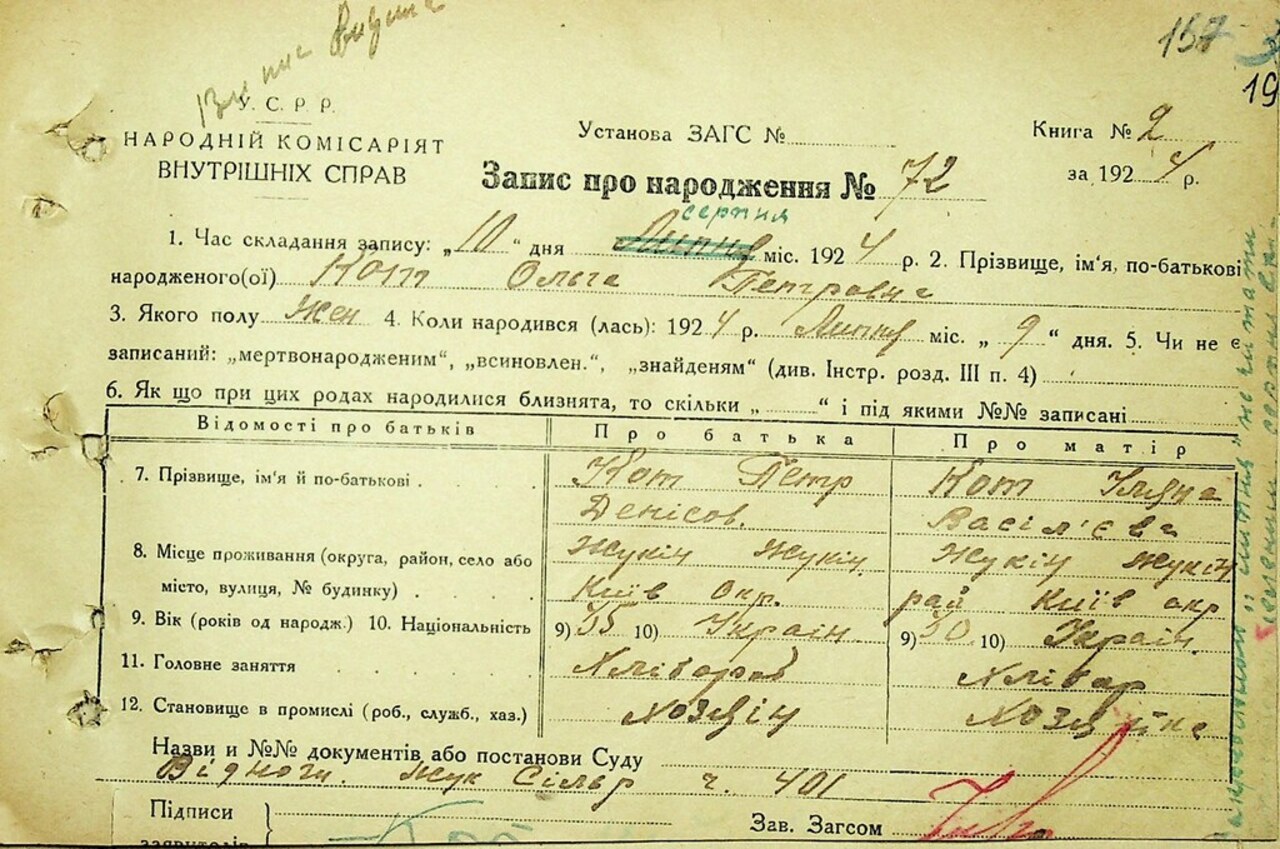 157
19
У. С. Р. Р.
НАРОДНІЙ КОМІСАРІЯТ
ВНУТРІШНІХ СПРАВ
Установа ЗАГС №
Книга № 2
за 1924 р.
Запис про народження № 72
серпня
1. Час складання запису: „10“ дня Липня міс. 1924 р. 2. Прізвище, ім'я, по-батькові
народженого(ої) Кот Ольга Петровна
3. Якого полу жен 4. Коли народився (лась): 1924 р. Липня міс. „9“ дня. 5. Чи не є
записаний: „мертвонародженим“, „всиновлен.“, „знайденям“ (див. Інстр. розд. III п. 4)
6. Як що при цих родах народилися близнята, то скільки „ “ і під якими №№ записані
Відомості про батьків Про батька Про матір
7. Прізвище, ім'я й по-батькові Кот Петр Кот Уляна
Денісов. Васіл'єва
8. Місце проживання (округа, район, село або Жукін Жукін Жукін Жукін
місто, вулиця, № будинку) Київ окр. рай Київ окр
9. Вік (років од народж.) 10. Національність 9) 35 10) Українн. 9) 30 10) Україн.
11. Головне заняття Хлібороб Хлібор
12. Становище в промислі (роб., служб., хаз.) Хозяін Хозяйка
Назви и №№ документів або постанови Суду
Відноги. Жук Сільр ч. 401
Підписи
заявителів
Зав. Загсом